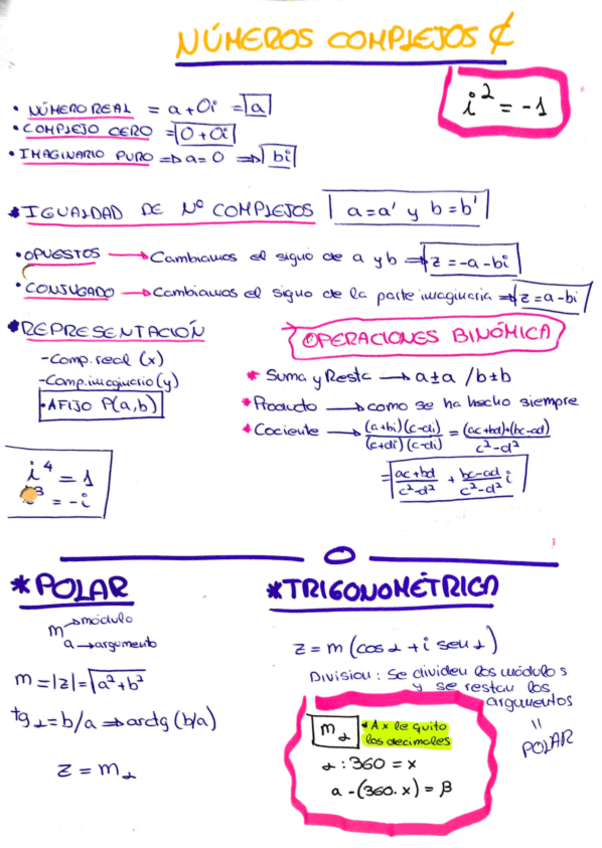 NÚMEROS COMPLEJOS ₵
i² = -1
• NÚMERO REAL = a + 0i = a
• COMPLEJO CERO = 0 + 0i
• IMAGINARIO PURO => a = 0 => bi
* IGUALDAD DE Nº COMPLEJOS a = a' y b = b'
• OPUESTOS → Cambiamos el signo de a y b => z = -a - bi
• CONJUGADO → Cambiamos el signo de la parte imaginaria => z = a - bi
* REPRESENTACIÓN
- Comp. real (x)
- Comp. imaginario (y)
• AFIJO P(a,b)
i⁴ = 1
³ = -i
OPERACIONES BINÓMICA
* Suma y Resta → a±a / b±b
* Producto → como se ha hecho siempre
* Cociente → (a+bi)(c-di)/(c+di)(c-di) = (ac+bd)+(bc-ad)/c²-d²
= ac+bd/c²-d² + bc-ad/c²-d² i
* POLAR
m → módulo
a → argumento
m = |z| = √a²+b²
tg α = b/a => arctg (b/a)
z = m α
* TRIGONOMÉTRICA
z = m (cos α + i sen α)
División: Se dividen los módulos
y se restan los
argumentos
=
POLAR
m α * A x le quito
los decimales
α : 360 = x
a - (360 · x) = β